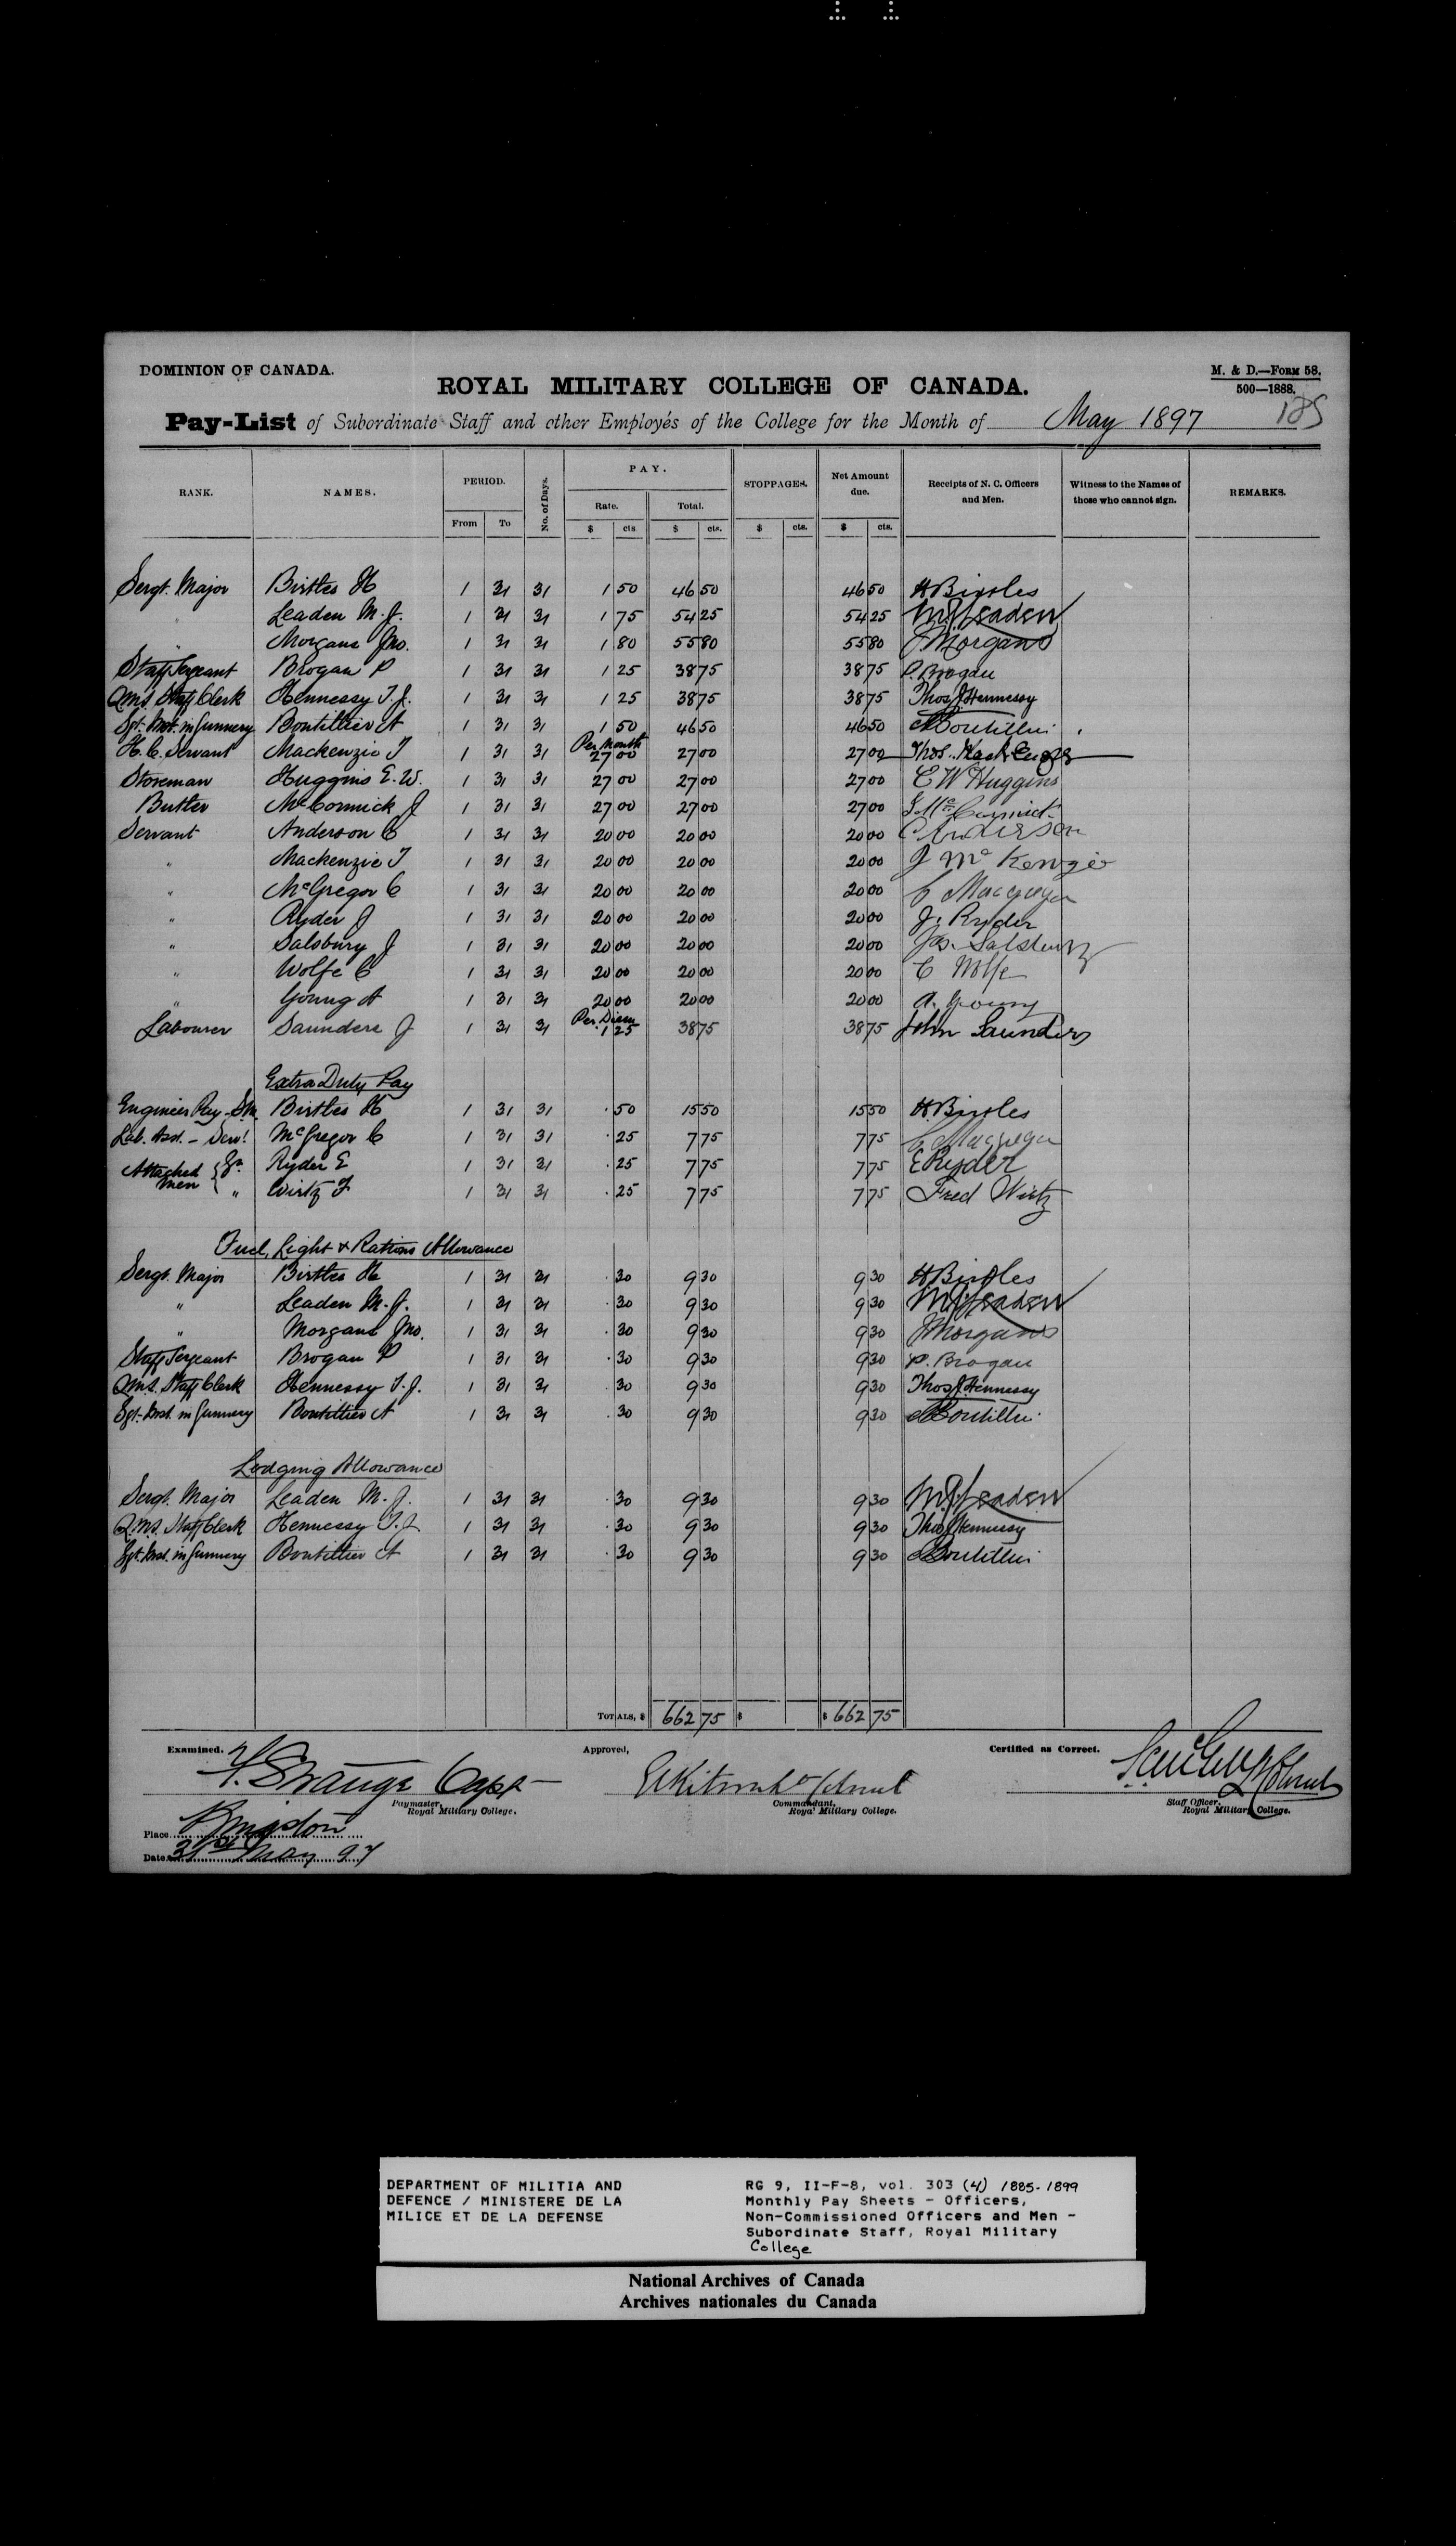 DOMINION OF CANADA.
M. & D.—FORM 58.
500—1888.
185
ROYAL MILITARY COLLEGE OF CANADA.
Pay-List of Subordinate Staff and other Employés of the College for the Month of May 1897
RANK. NAMES. PERIOD. From To No. of Days. PAY. Rate. $ cts. Total. $ cts. STOPPAGES. $ cts. Net Amount due. $ cts. Receipts of N. C. Officers and Men. Witness to the Names of those who cannot sign. REMARKS.
Sergt. Major Birtles H 1 31 31 1 50 46 50 46 50 H Birtles
" Leaden M. J. 1 31 31 1 75 54 25 54 25 M. J. Leaden
" Morgans Jno. 1 31 31 1 80 55 80 55 80 J Morgans
Staff Sergeant Brogan P 1 31 31 1 25 38 75 38 75 P. Brogan
Q.M.S. Staff Clerk Hennessy T. J. 1 31 31 1 25 38 75 38 75 Thos J Hennessy
Sgt. Inst. in Gunnery Boutillier A 1 31 31 1 50 46 50 46 50 A Boutillier
H. C. Servant Mackenzie T 1 31 31 Per Month 27 00 27 00 27 00 Thos. MacKenzie
Storeman Huggins E. W. 1 31 31 27 00 27 00 27 00 E W Huggins
Butler McCormick J 1 31 31 27 00 27 00 27 00 J. McCormick
Servant Anderson C 1 31 31 20 00 20 00 20 00 C Anderson
" Mackenzie J 1 31 31 20 00 20 00 20 00 J McKenzie
" McGregor C 1 31 31 20 00 20 00 20 00 C Macgregor
" Ryder J 1 31 31 20 00 20 00 20 00 J. Ryder
" Salsbury J 1 31 31 20 00 20 00 20 00 Js. Salsbury
" Wolfe C 1 31 31 20 00 20 00 20 00 C Wolfe
" Young A 1 31 31 20 00 20 00 20 00 A. Young
Labourer Saunders J 1 31 31 Per Diem 1 25 38 75 38 75 John Saunders
Extra Duty Pay
Engineer Pay - S.M. Birtles H 1 31 31 . 50 15 50 15 50 H Birtles
Lab. Asst. - Servt. McGregor C 1 31 31 . 25 7 75 7 75 C Macgregor
Attached Men { Gr. Ryder E 1 31 31 . 25 7 75 7 75 E Ryder
" Wirtz F 1 31 31 . 25 7 75 7 75 Fred Wirtz
Fuel, Light & Rations Allowance
Sergt. Major Birtles H 1 31 31 . 30 9 30 9 30 H Birtles
" Leaden M. J. 1 31 31 . 30 9 30 9 30 M. J. Leaden
" Morgans Jno. 1 31 31 . 30 9 30 9 30 J Morgans
Staff Sergeant Brogan P 1 31 31 . 30 9 30 9 30 P. Brogan
Q.M.S. Staff Clerk Hennessy T. J. 1 31 31 . 30 9 30 9 30 Thos J Hennessy
Sgt. Inst. in Gunnery Boutillier A 1 31 31 . 30 9 30 9 30 A Boutillier
Lodging Allowance
Sergt. Major Leaden M. J. 1 31 31 . 30 9 30 9 30 M. J. Leaden
Q.M.S. Staff Clerk Hennessy T. J. 1 31 31 . 30 9 30 9 30 Thos J Hennessy
Sgt. Inst. in Gunnery Boutillier A 1 31 31 . 30 9 30 9 30 A Boutillier
TOTALS, $ 662 75 $ $ 662 75
Examined. Approved, Certified as Correct.
Strange Capt
Paymaster, Royal Military College.
Commandant, Royal Military College.
Staff Officer, Royal Military College.
Place Kingston
Date 31st May 97
DEPARTMENT OF MILITIA AND
DEFENCE / MINISTERE DE LA
MILICE ET DE LA DEFENSE
RG 9, II-F-8, vol. 303 (4) 1885-1899
Monthly Pay Sheets - Officers,
Non-Commissioned Officers and Men -
Subordinate Staff, Royal Military
College
National Archives of Canada
Archives nationales du Canada